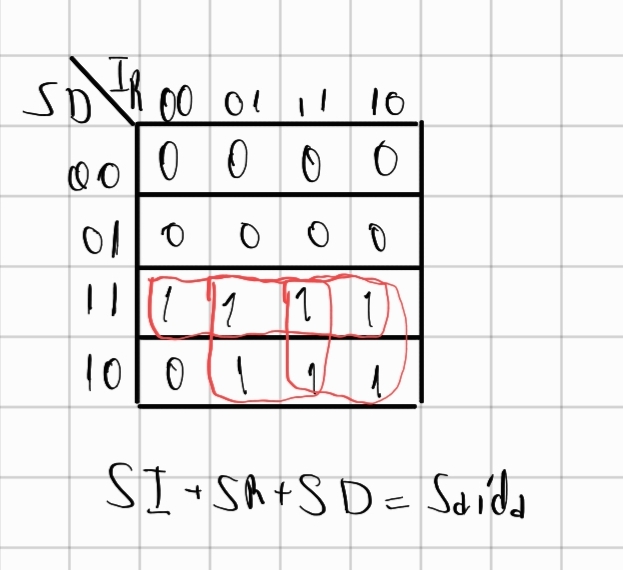 IR
SD 00 01 11 10
00 0 0 0 0
01 0 0 0 0
11 1 1 1 1
10 0 1 1 1
SI + SR + SD = Saída